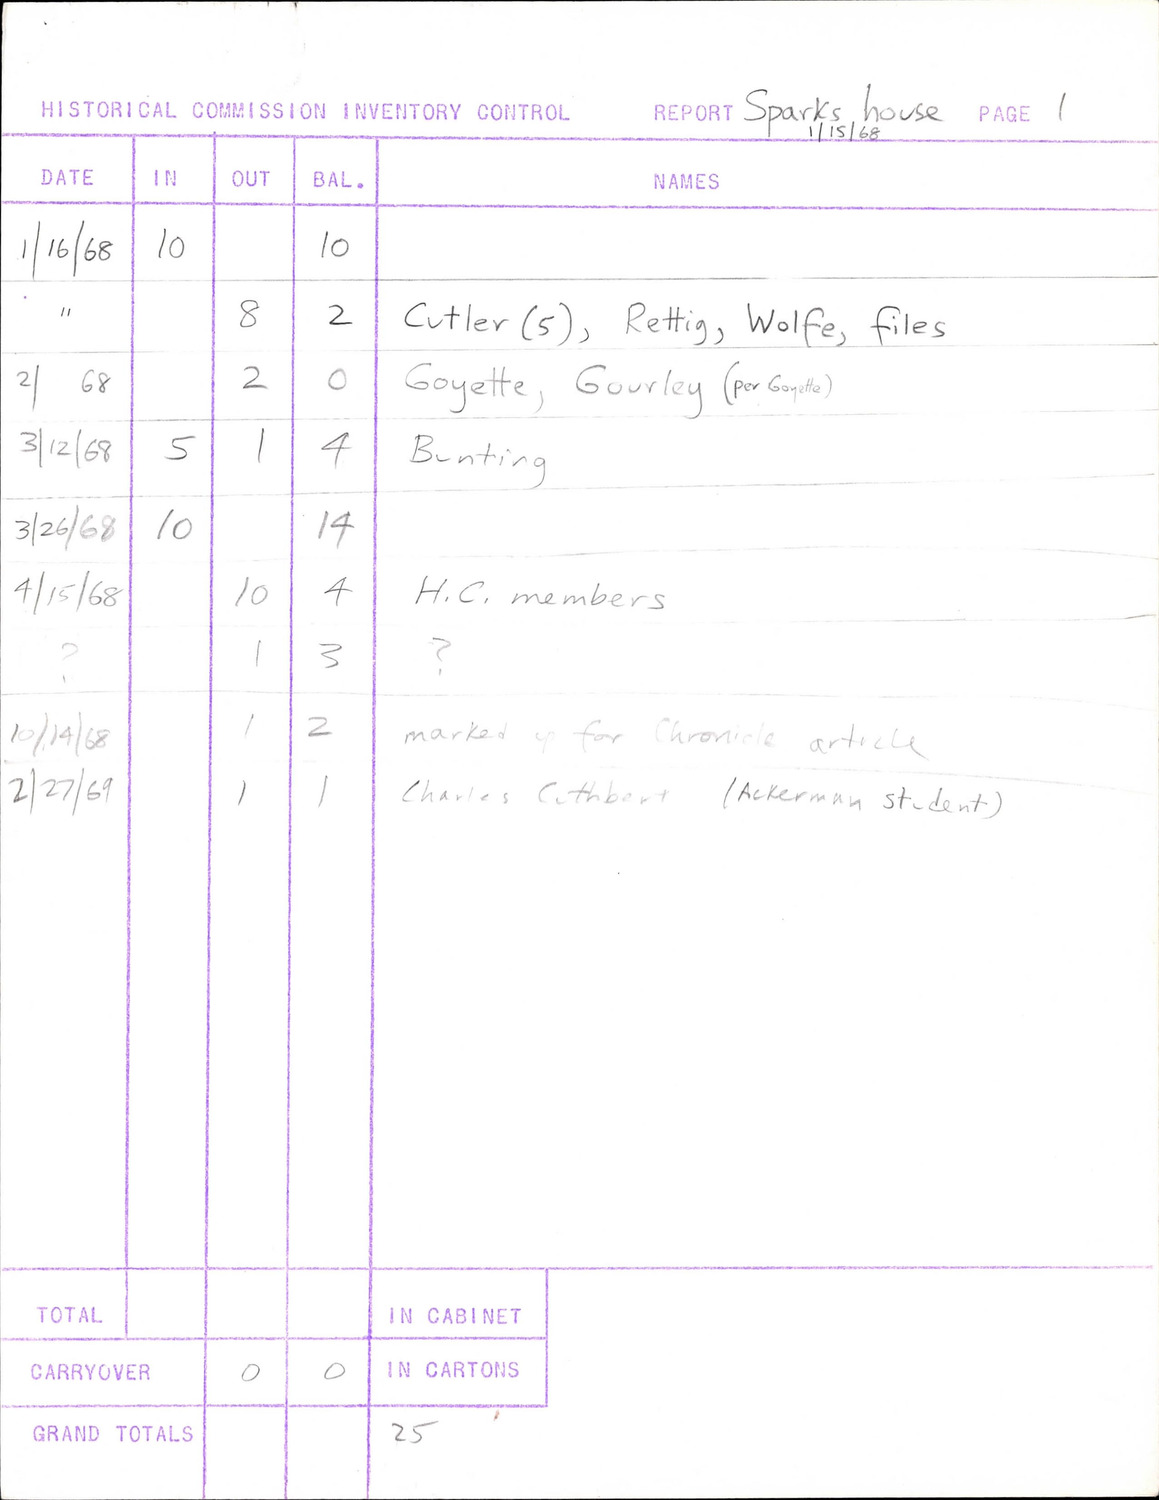 HISTORICAL COMMISSION INVENTORY CONTROL REPORT Sparks house PAGE 1
1/15/68
DATE IN OUT BAL. NAMES
1/16/68 10 10
" 8 2 Cutler (5), Rettig, Wolfe, files
2/ 68 2 0 Goyette, Gourley (per Goyette)
3/12/68 5 1 4 Bunting
3/26/68 10 14
4/15/68 10 4 H.C. members
? 1 3 ?
10/14/68 1 2 marked up for Chronicle article
2/27/69 1 1 Charles Cuthbert (Ackerman student)
TOTAL IN CABINET
CARRYOVER 0 0 IN CARTONS
GRAND TOTALS 25